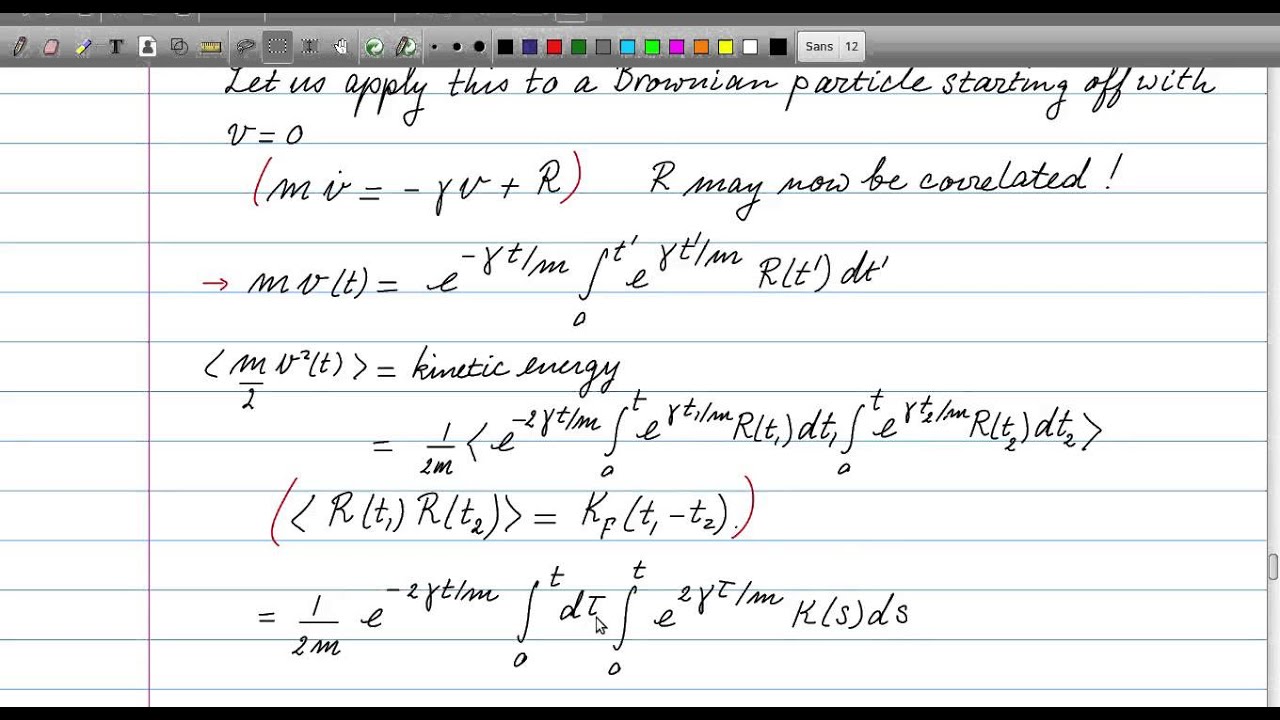 Sans 12
Let us apply this to a Brownian particle starting off with
v = 0
(m v̇ = - γv + R) R may now be correlated!
→ m v(t) = e^{-γt/m} ∫_0^{t'} e^{γt'/m} R(t') dt'
⟨m/2 v²(t)⟩ = kinetic energy
= 1/2m ⟨e^{-2γt/m} ∫_0^t e^{γt₁/m} R(t₁) dt₁ ∫_0^t e^{γt₂/m} R(t₂) dt₂⟩
(⟨R(t₁) R(t₂)⟩ = K_F (t₁ - t₂).)
= 1/2m e^{-2γt/m} ∫_0^t dτ ∫_0^t e^{2γτ/m} K(s) ds